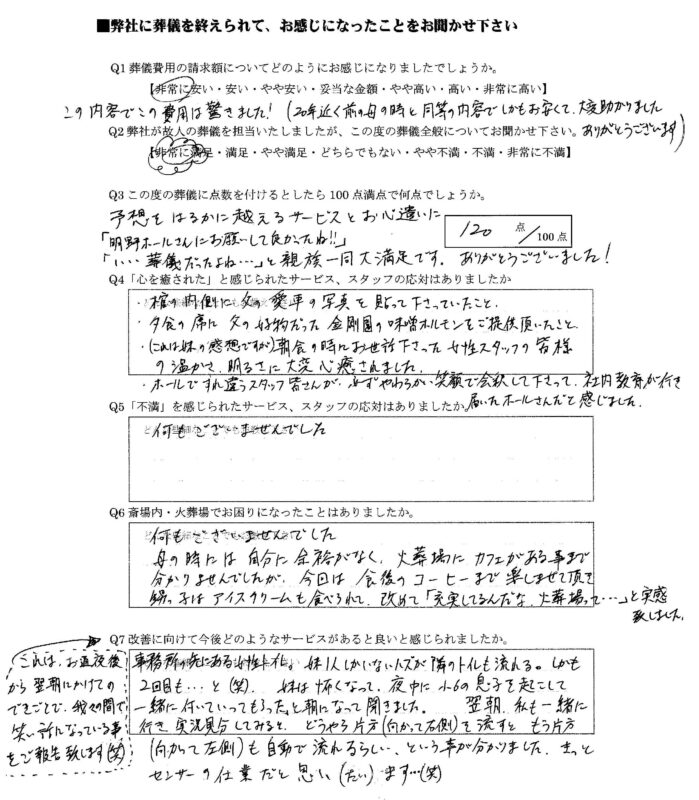 ■弊社に葬儀を終えられて、お感じになったことをお聞かせ下さい
Q1 葬儀費用の請求額についてどのようにお感じになりましたでしょうか。
【非常に安い・安い・やや安い・妥当な金額・やや高い・高い・非常に高い】
この内容でこの費用は驚きました！(20年近く前の母の時と同等の内容でしかもお安くて、大変助かりました
ありがとうございます)
Q2 弊社が故人の葬儀を担当いたしましたが、この度の葬儀全般についてお聞かせ下さい。
【非常に満足・満足・やや満足・どちらでもない・やや不満・不満・非常に不満】
Q3 この度の葬儀に点数を付けるとしたら 100 点満点で何点でしょうか。
予想をはるかに越えるサービスとお心遣いに
120 点/100 点
「明野ホールさんにお願いして良かったね!!」
「いい葬儀だったよね…」と親族一同大満足です。ありがとうございました！
Q4「心を癒された」と感じられたサービス、スタッフの応対はありましたか
・棺の内側に父の愛車の写真を貼って下さっていたこと。
・夕食の席に父の好物だった金剛園の味噌ホルモンをご提供頂いたこと
・(これは妹の感想ですが)朝食の時にお世話下さった女性スタッフの皆様
の温かさ、明るさに大変心癒されました。
・ホールですれ違うスタッフ皆さんが、必ずやわらかい笑顔で会釈して下さって、社内教育が行き
届いたホールさんだと感じました。
Q5「不満」を感じられたサービス、スタッフの応対はありましたか。
何もございませんでした
Q6 斎場内・火葬場でお困りになったことはありましたか。
何もございませんでした
母の時には自分に余裕がなく、火葬場にカフェがある事まで
分かりませんでしたが、今回は食後のコーヒーまで楽しませて頂き
甥っ子はアイスクリームも食べられて、改めて「充実してるんだな、火葬場って…」と実感
致しました。
Q7 改善に向けて今後どのようなサービスがあると良いと感じられましたか。
これは、お通夜後
から翌朝にかけての
できごとで、我々の間で
笑い話になっている事
をご報告致します(笑)
事務所の先にある女性トイレ。妹1人しかいないハズが隣のトイレも流れる。しかも
2回も…と(笑)。妹は怖くなって、夜中に小6の息子を起こして
一緒に付いていってもらったと朝になって聞きました。翌朝、私も一緒に
行き実況見分してみると、どうやら片方(向かって右側)を流すともう片方
(向かって左側)も自動で流れるらしい、という事が分かりました。きっと
センサーの仕業だと思い(たい)ます…(笑)